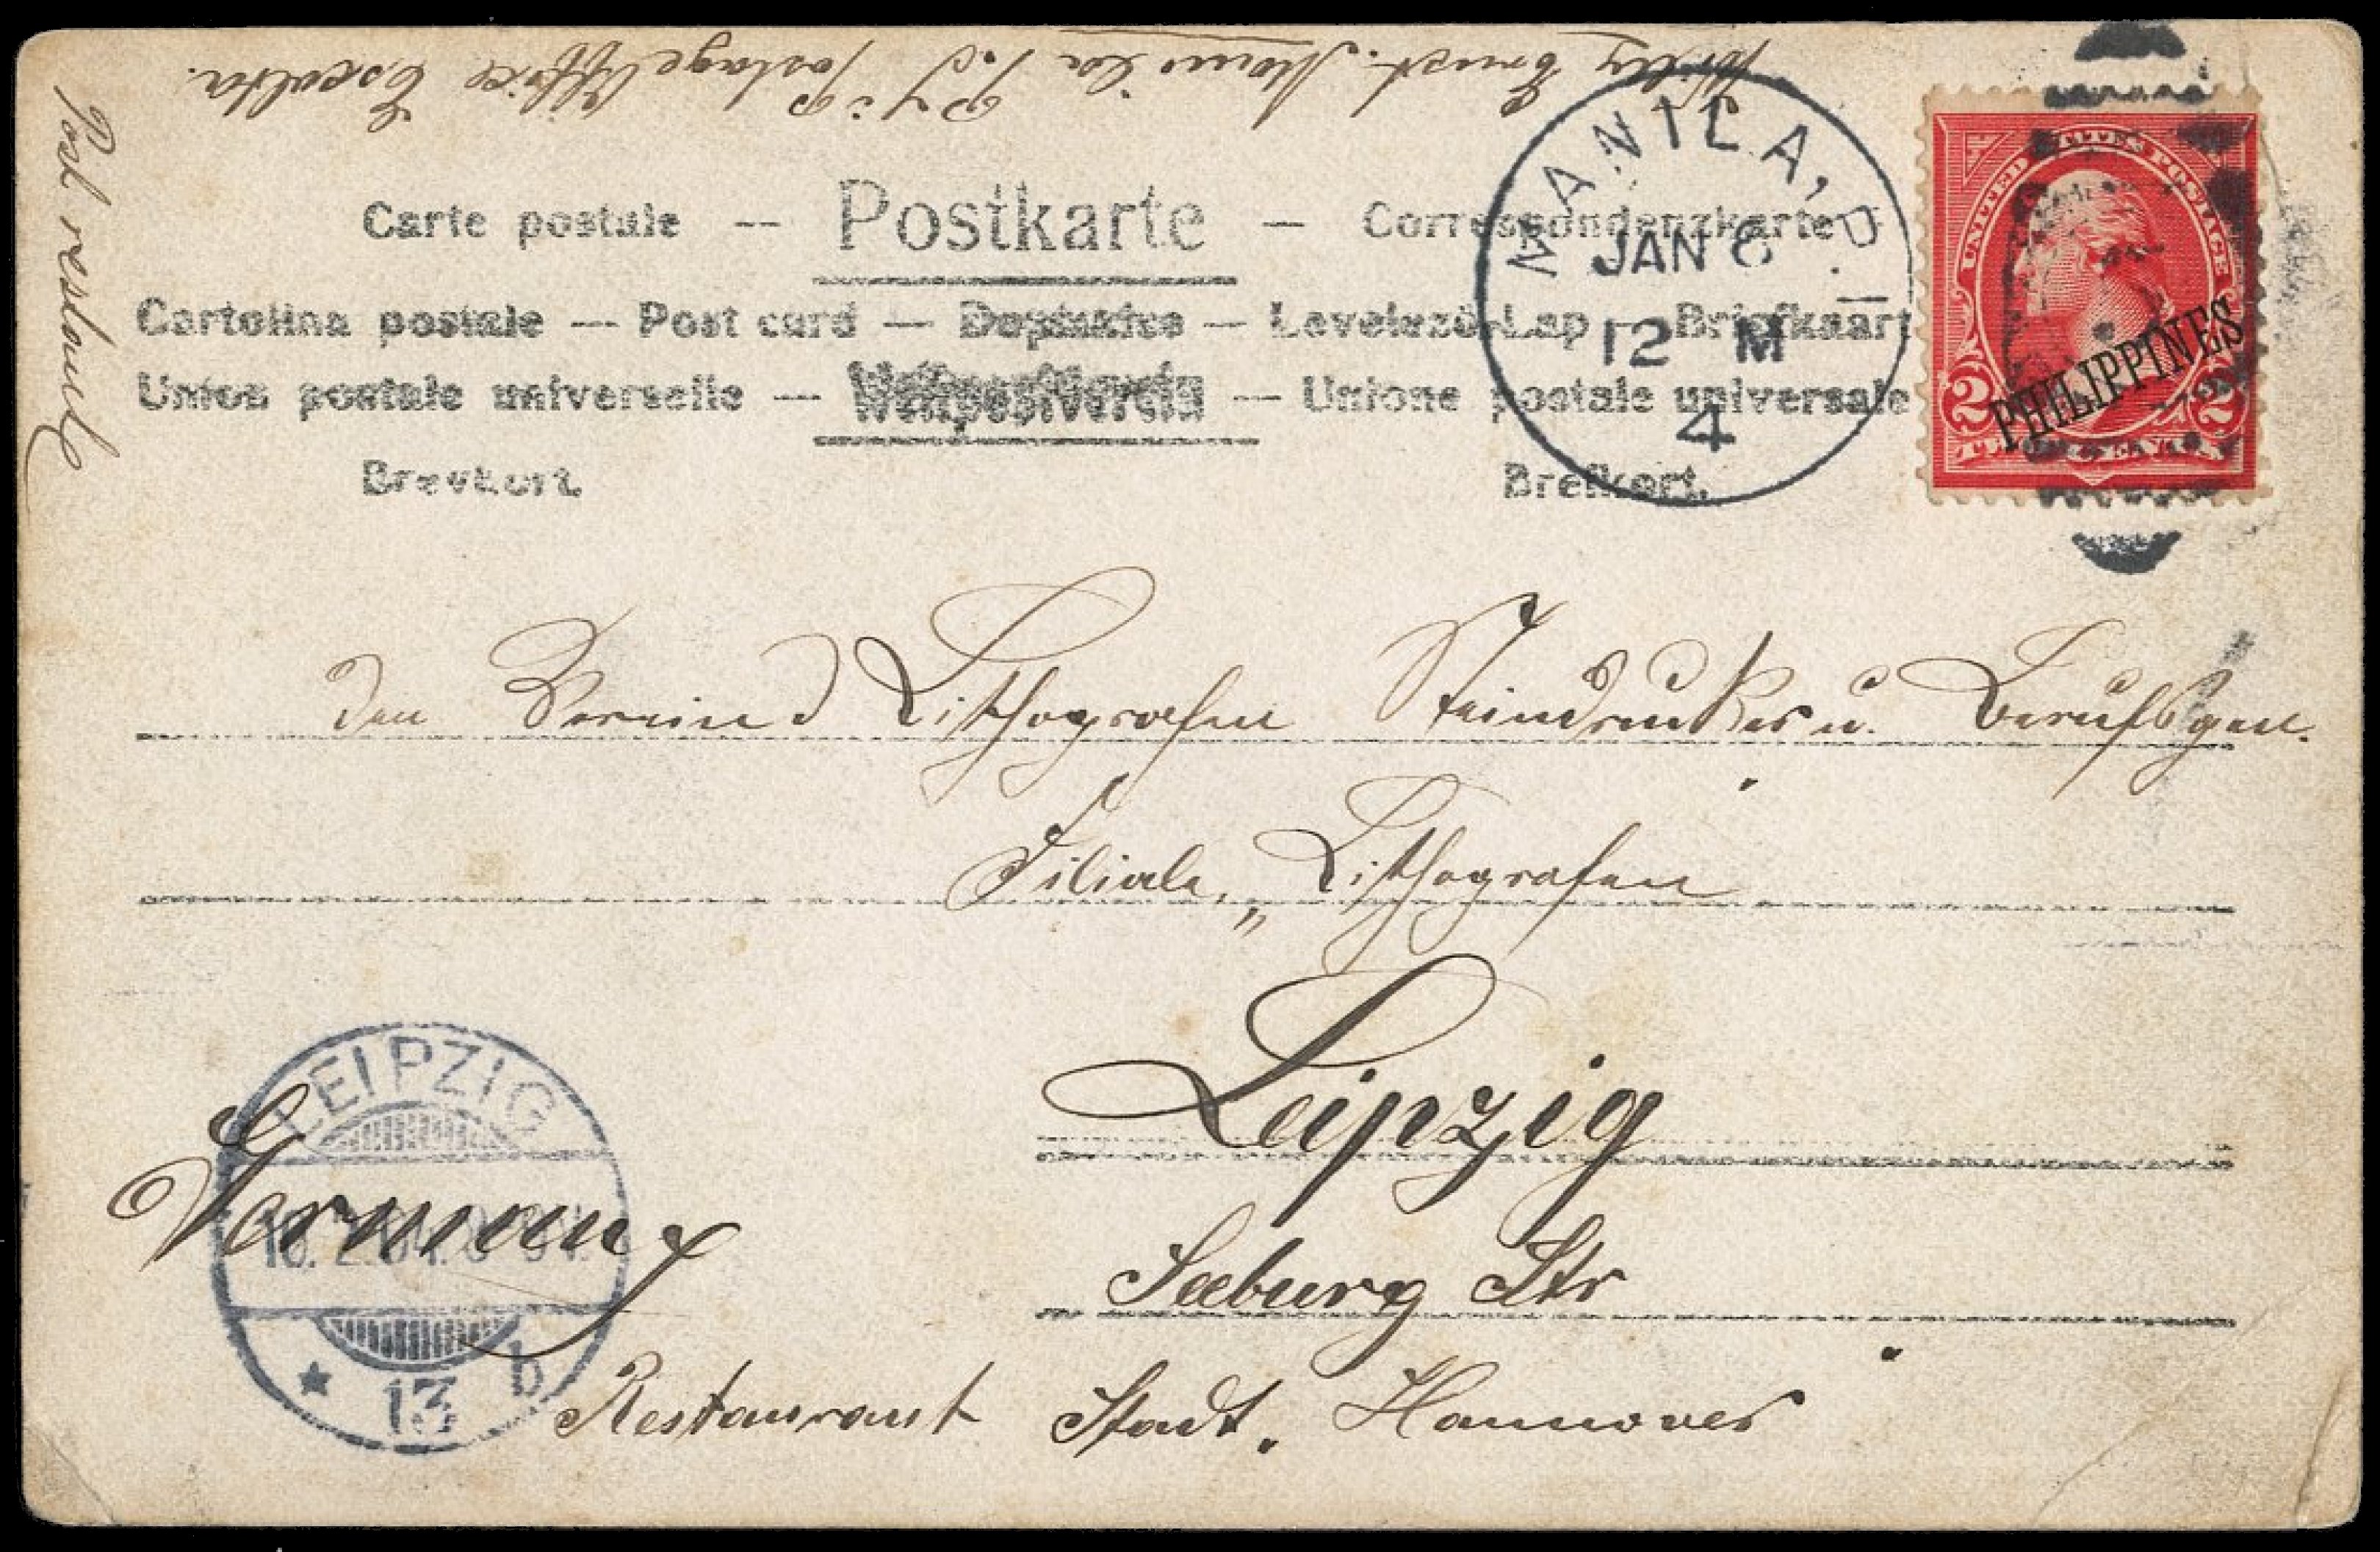 Willy Ernst. Manila P.I. Postage Office Escolta.
Post restante
Carte postale -- Postkarte — Correspondenzkarte
Cartolina postale — Post card — — Levelező-Lap — Briefkaart
Union postale universelle — Weltpostverein — Unione postale universale
Brevkort. Brefkort.
MANILA, P.I.
JAN 6
12 M
4
UNITED STATES POSTAGE
PHILIPPINES
2 2
TWO CENTS
Den Verein d Lithografen Steindrucker u. Berufsgen.
Filiale „Lithografen
Leipzig
Seeburg Str
Germany
Restaurant Stadt. Hannover
LEIPZIG
13 b